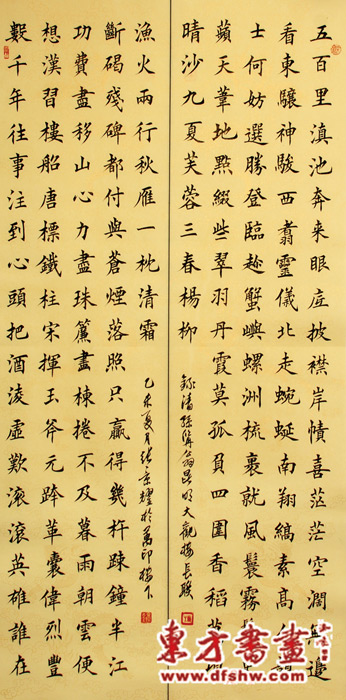 五百里滇池奔来眼底披襟岸幘喜茫茫空濶無邊
看東驤神駿西翥靈儀北走蜿蜒南翔縞素高
士何妨選勝登臨趁蟹嶼螺洲梳裹就風鬟霧
蘋天葦地點綴些翠羽丹霞莫孤負四圍香稻
晴沙九夏芙蓉三春楊柳
錄清孫髯翁昆明大觀樓長聯
數千年往事注到心頭把酒凌虛歎滾滾英雄誰在
想漢習樓船唐標鐵柱宋揮玉斧元跨革囊偉烈豐
功費盡移山心力盡珠簾畫棟捲不及暮雨朝雲便
斷碣殘碑都付與蒼煙落照只贏得幾杵疎鐘半江
漁火兩行秋雁一枕清霜
乙未夏月張京耀於萬印樓下
東方書畫
www.dfshw.com